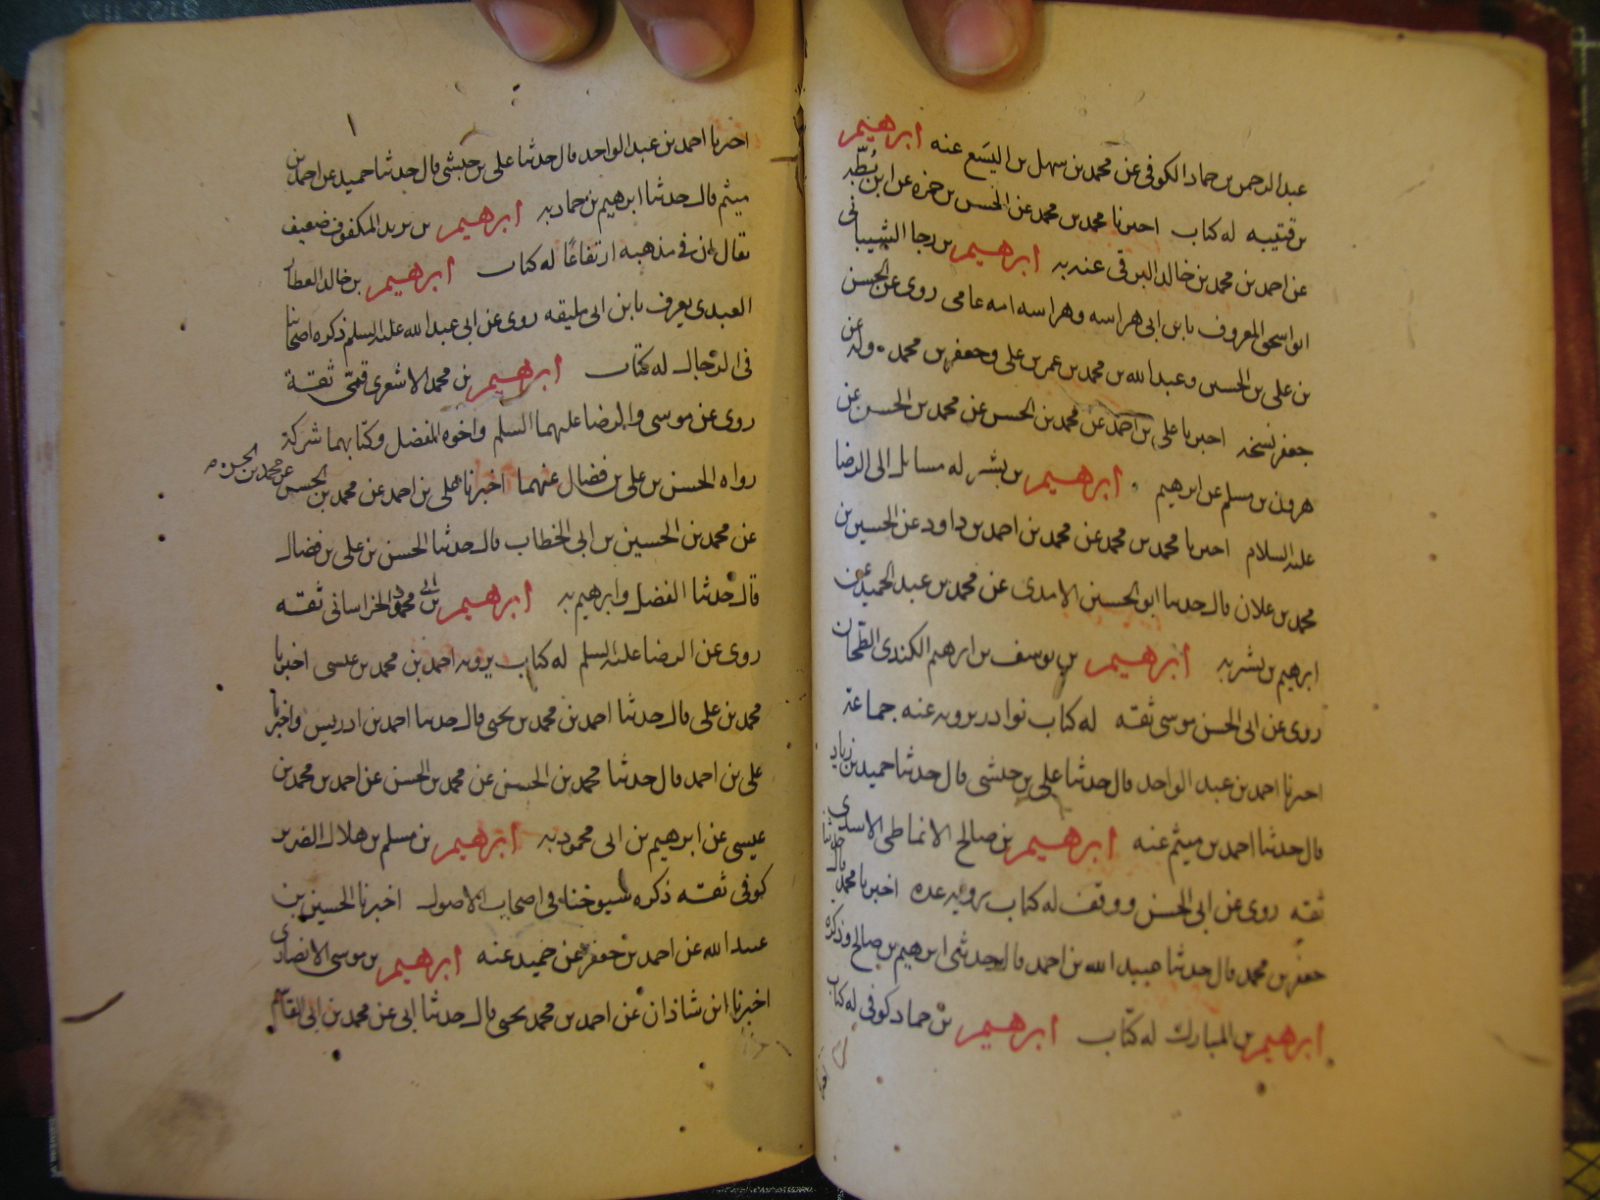 عبد الرحمن بن حماد الكوفى عن محمد بن سهل بن اليسع عنه ابرهيم
بن قتيبه له كتاب اخبرنا محمد بن محمد عن الحسن بن حمزه عن ابن بُطّه
عن احمد بن محمد بن خالد البرقى عنه به ابرهيم بن رجا الشيبانى
ابو اسحق المعروف بابن ابى هراسه وهراسه امه عامى روى عن الحسن
بن على بن الحسين وعبد الله بن محمد بن عمر بن على وجعفر بن محمد وله عن
جعفر نسخه اخبرنا على بن احمد عن محمد بن الحسن عن محمد بن الحسن عن
هرون بن مسلم عن ابرهيم ابرهيم بن بشر له مسائل الى الرضا
عليه السلام اخبرنا محمد بن محمد عن محمد بن احمد بن داود عن الحسين بن
محمد بن علان قال حدثنا ابو الحسين الامدى عن محمد بن عبد الحميد عن
ابرهيم بن بشر به ابرهيم بن يوسف بن ابرهيم الكندى الطحان
روى عن ابى الحسن موسى ثقه له كتاب نوادر يرويه عنه جماعة
اخبرنا احمد بن عبد الواحد قال حدثنا على بن حبشى قال حدثنا حميد بن زياد
قال حدثنا احمد بن ميثم عنه ابرهيم بن صالح الانماطى الاسدى
ثقه روى عن ابى الحسن ووقف له كتاب يرويه عده اخبرنا محمد قال حدثنا
جعفر بن محمد قال حدثنا عبيد الله بن احمد قال حدثنى ابرهيم بن صالح وذكره
ابرهيم بن المبارك له كتاب ابرهيم بن حماد كوفى له كتاب
اخبرنا احمد بن عبد الواحد قال حدثنا على بن حبشى قال حدثنا حميد عن احمد بن
ميثم قال حدثنا ابرهيم بن حماد به ابرهيم بن يزيد المكفوف ضعيف
يقال ان فى مذهبه ارتفاعًا له كتاب ابرهيم بن خالد العطار
العبدى يعرف بابن ابى مليقه روى عن ابى عبد الله عليه السلم ذكره اصحابنا
فى الرجال له كتاب ابرهيم بن محمد الاشعرى قمّى ثقة
روى عن موسى والرضا عليهما السلم واخوه الفضل وكتابهما شركة
رواه الحسن بن على بن فضال عنهما اخبرنا على بن احمد عن محمد بن الحسن عن محمد بن الحسن
عن محمد بن الحسين بن ابى الخطاب قال حدثنا الحسن بن على بن فضال
قال حدثنا الفضل وابرهيم به ابرهيم بن ابى محمود الخراسانى ثقه
روى عن الرضا عليه السلم له كتاب يرويه احمد بن محمد بن عيسى اخبرنا
محمد بن على قال حدثنا احمد بن محمد بن يحيى قال حدثنا احمد بن ادريس واخبرنا
على بن احمد قال حدثنا محمد بن الحسن عن محمد بن الحسن عن احمد بن محمد بن
عيسى عن ابرهيم بن ابى محمود به ابرهيم بن مسلم بن هلال الضرير
كوفى ثقه ذكره شيوخنا فى اصحاب الاصول اخبرنا الحسين بن
عبيد الله عن احمد بن جعفر عن حميد عنه ابرهيم بن موسى الانصارى
اخبرنا ابن شاذان عن احمد بن محمد يحيى قال حدثنا ابى عن محمد بن ابى القاسم